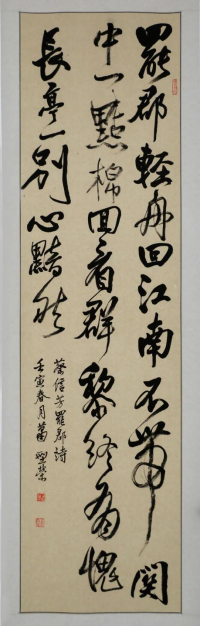 罷郡輕舟回江南不帶関
中一點棉回看群黎終有愧
長亭一別心黯然
蔡信芳罷郡詩
壬寅春月萬